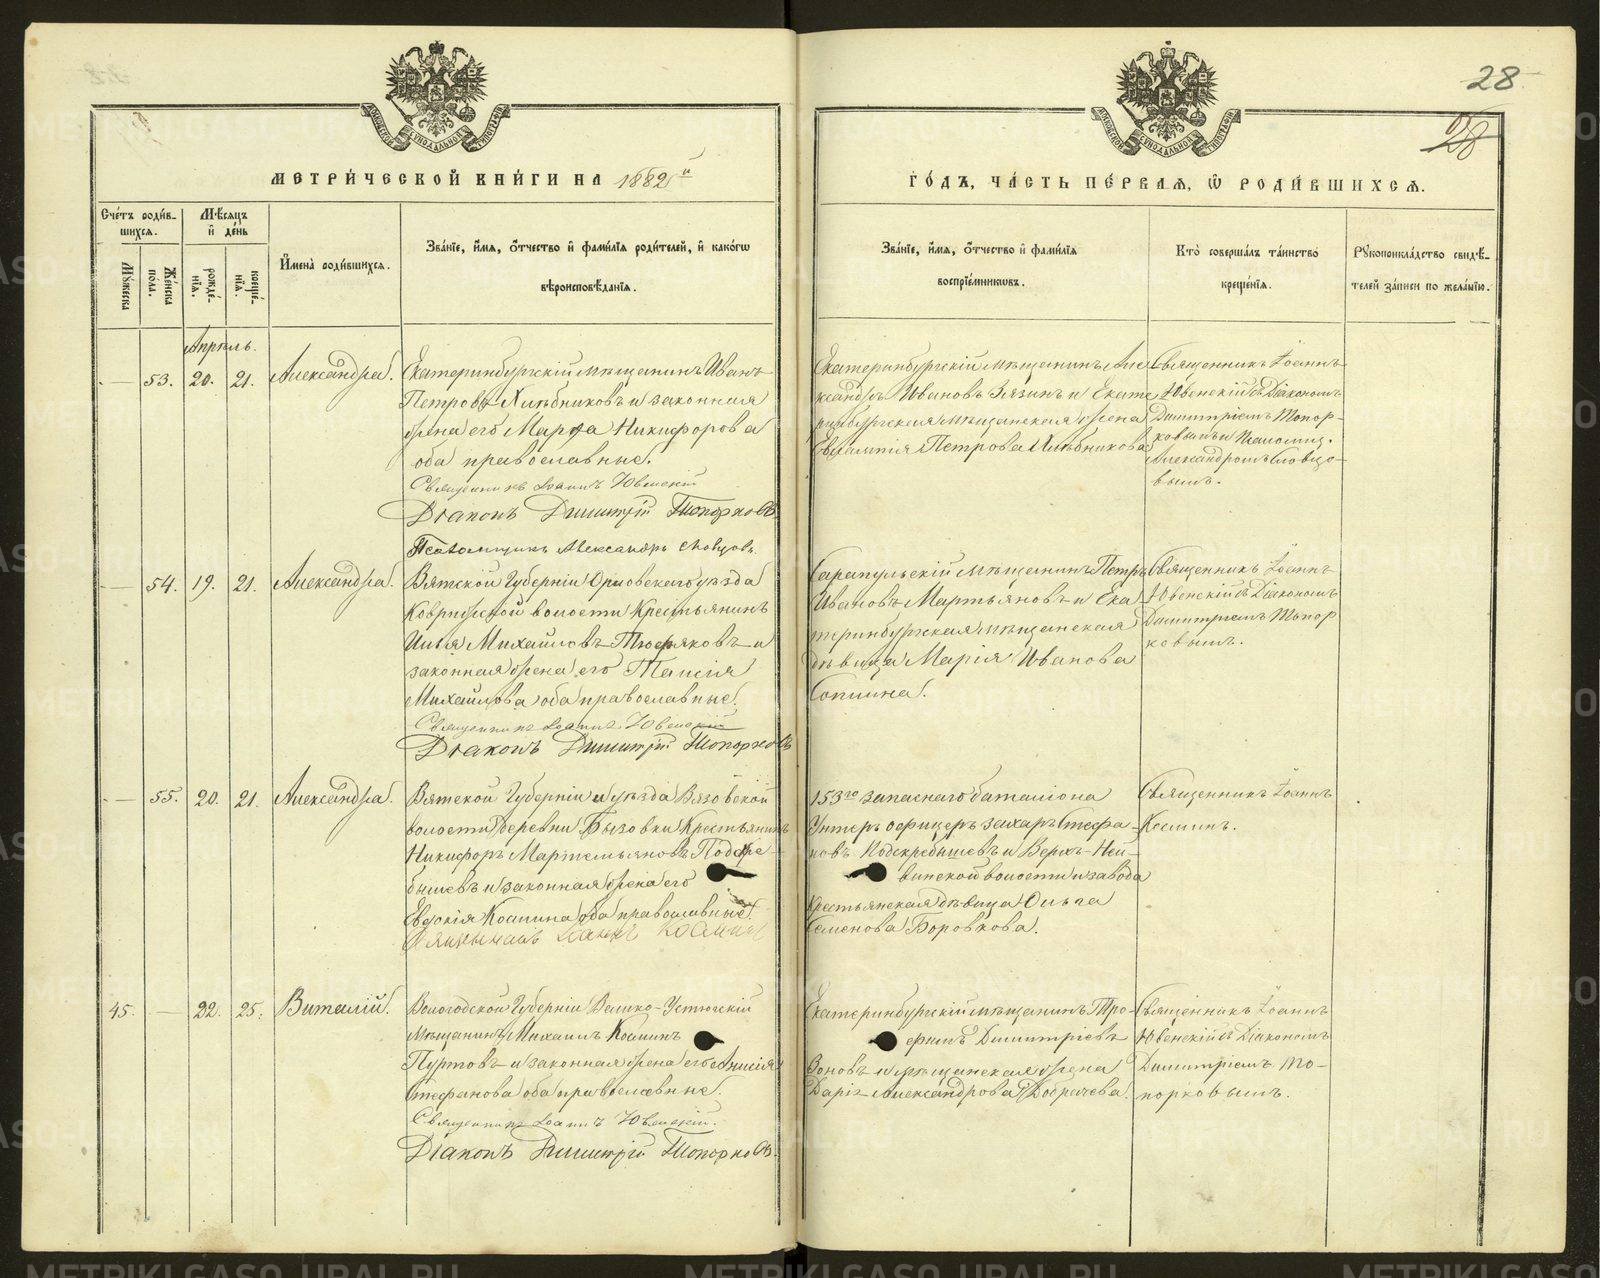 28
28
МЕТРИ́ЧЕСКОЙ КНИ́ГИ НА 1882й
ГО́ДЪ, ЧА́СТЬ ПЕ́РВАЯ, Ѡ РОДИ́ВШИХСЯ.
Сче́тъ роди́в-
шихся.
Мꙋ́жеска
Же́нска
по́ла.
Мѣ́сяцъ
и҆ де́нь
рожде́-
нїя.
креще́-
нїя.
И҆мена̀ роди́вшихся.
Зва́нїе, и҆́мя, о҆́тчество и҆ фами́лїя роди́телей, и҆ како́гѡ
вѣроисповѣ́данїя.
Зва́нїе, и҆́мя, о҆́тчество и҆ фами́лїя
воспрїе́мникѡвъ.
Кто̀ соверша́лъ та́инство
креще́нїя.
Рꙋкоприкла́дство свидѣ́-
телей за́писи по жела́нїю.
Апрѣль.
53. 20. 21. Александра.
Екатеринбургскій мѣщанинъ Иванъ
Петровъ Хлѣбниковъ и законная
жена его Марфа Никифорова
оба православные.
Священникъ Іоаннъ Ювенскій
Діаконъ Димитрій Топорковъ
Псаломщикъ Александръ Словцовъ.
Екатеринбургскій мѣщанинъ Але-
ксандръ Ивановъ Зязинъ и Екате-
ринбургская мѣщанская жена
Евлампія Петрова Хлѣбникова
Священникъ Іоаннъ
Ювенскій съ Діакономъ
Димитріемъ Топор-
ковымъ и Псаломщ.
Александромъ Словцо-
вымъ.
54. 19. 21. Александра.
Вятской Губерніи Орловскаго уѣзда
волости Крестьянинъ
Илья Михайловъ Тюфяковъ и
законная жена его Таисія
Михайлова оба православные.
Священникъ Іоаннъ Ювенскій
Діаконъ Димитрій Топорковъ
Сарапульскій мѣщанинъ Петръ
Ивановъ Мартьяновъ и Ека-
теринбургская мѣщанская
дѣвица Марія Иванова
Священникъ Іоаннъ
Ювенскій съ Діакономъ
Димитріемъ Топор
ковымъ.
55. 20. 21. Александра.
Вятской Губерніи и уѣзда Вязовской
волости деревни Бызовки Крестьянинъ
Никифоръ Мартемьяновъ Подскре-
бышевъ и законная жена его
Евдокія Космина оба православные.
Священникъ Іоаннъ Косминъ
153го запаснаго баталіона
Унтеръ офицеръ Захаръ Стефа-
новъ Подскребышевъ и Верхъ-Ней-
винской волости и завода
Крестьянская дѣвица Ольга
Семенова Боровкова.
Священникъ Іоаннъ
Косминъ.
45. 22. 25. Виталій.
Вологодской Губерніи Велико-Устюгскій
мѣщанинъ Михаилъ Косминъ
Пуртовъ и законная жена его Анисія
Стефанова оба православные.
Священникъ Іоаннъ Ювенскій.
Діаконъ Димитрій Топорковъ.
Екатеринбургскій мѣщанинъ Тро-
фимъ Димитріевъ
Зоновъ и мѣщанская жена
Дарія Александрова Добрачева.
Священникъ Іоаннъ
Ювенскій съ Діакономъ
Димитріемъ То-
порковымъ.
METRIKI.GASO-URAL.RU